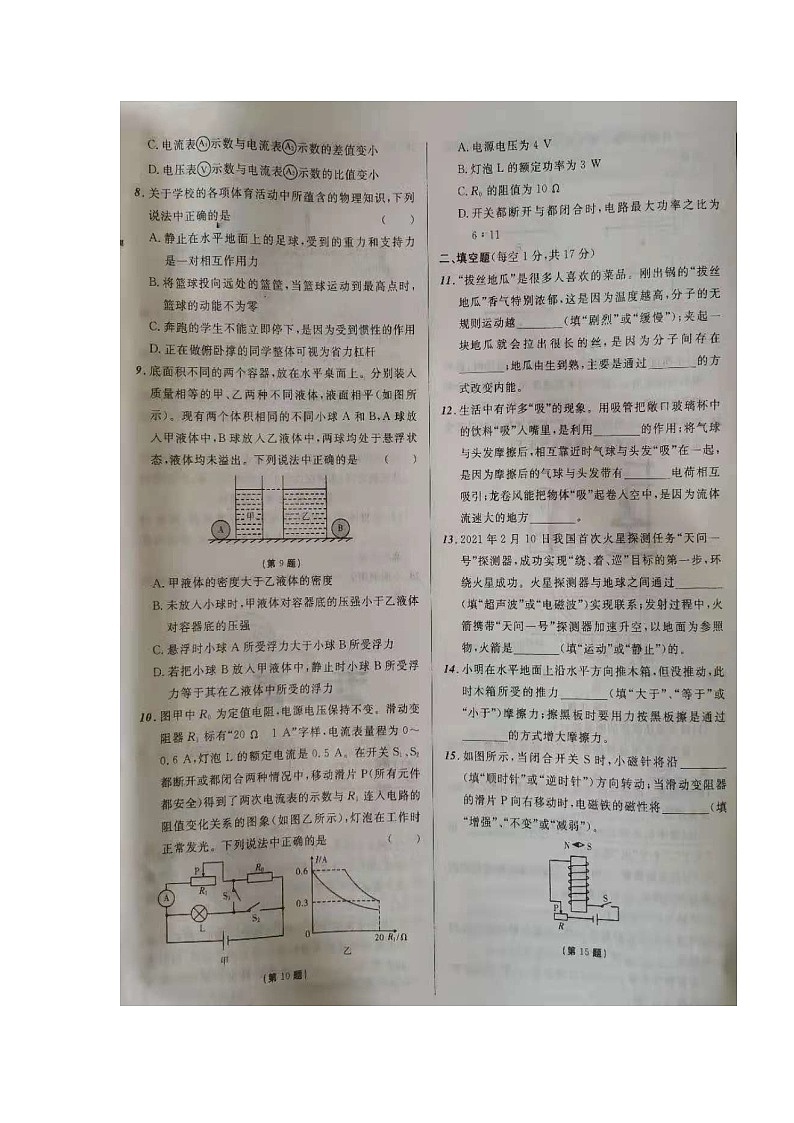 C. 电流表A₁示数与电流表A₂示数的差值变小
D. 电压表V示数与电流表A₂示数的比值变小
8. 关于学校的各项体育活动中所蕴含的物理知识,下列
说法中正确的是 ( )
A. 静止在水平地面上的足球,受到的重力和支持力
是一对相互作用力
B. 将篮球投向远处的篮筐,当篮球运动到最高点时,
篮球的动能不为零
C. 奔跑的学生不能立即停下,是因为受到惯性的作用
D. 正在做俯卧撑的同学整体可视为省力杠杆
9. 底面积不同的两个容器,放在水平桌面上。分别装入
质量相等的甲、乙两种不同液体,液面相平(如图所
示)。现有两个体积相同的不同小球 A 和 B,A 球放
入甲液体中,B 球放入乙液体中,两球均处于悬浮状
态,液体均未溢出。下列说法中正确的是 ( )
A 甲 乙 B
(第 9 题)
A. 甲液体的密度大于乙液体的密度
B. 未放入小球时,甲液体对容器底的压强小于乙液体
对容器底的压强
C. 悬浮时小球 A 所受浮力大于小球 B 所受浮力
D. 若把小球 B 放入甲液体中,静止时小球 B 所受浮
力等于其在乙液体中所受的浮力
10. 图甲中 R₀ 为定值电阻,电源电压保持不变。滑动变
阻器 R₁ 标有“20 Ω 1 A”字样,电流表量程为 0~
0.6 A,灯泡 L 的额定电流是 0.5 A。在开关 S₁、S₂
都断开或都闭合两种情况中,移动滑片 P(所有元件
都安全)得到了两次电流表的示数与 R₁ 连入电路的
阻值变化关系的图象(如图乙所示),灯泡在工作时
正常发光。下列说法中正确的是 ( )
P R₁ R₀ A S₁ L S₂ 甲
I/A 0.6 0.3 0 20 R₁/Ω 乙
(第 10 题)
A. 电源电压为 4 V
B. 灯泡 L 的额定功率为 3 W
C. R₀ 的阻值为 10 Ω
D. 开关都断开与都闭合时,电路最大功率之比为
6∶11
二、填空题(每空 1 分,共 17 分)
11. “拔丝地瓜”是很多人喜欢的菜品。刚出锅的“拔丝
地瓜”香气特别浓郁,这是因为温度越高,分子的无
规则运动越______(填“剧烈”或“缓慢”);夹起一
块地瓜就会拉出很长的丝,是因为分子间存在
______;地瓜由生到熟,主要是通过______的方
式改变内能。
12. 生活中有许多“吸”的现象。用吸管把敞口玻璃杯中
的饮料“吸”入嘴里,是利用______的作用;将气球
与头发摩擦后,相互靠近时气球与头发“吸”在一起,
是因为摩擦后的气球与头发带有______电荷相互
吸引;龙卷风能把物体“吸”起卷入空中,是因为流体
流速大的地方______。
13. 2021 年 2 月 10 日我国首次火星探测任务“天问一
号”探测器,成功实现“绕、着、巡”目标的第一步,环
绕火星成功。火星探测器与地球之间通过______
(填“超声波”或“电磁波”)实现联系;发射过程中,火
箭携带“天问一号”探测器加速升空,以地面为参照
物,火箭是______(填“运动”或“静止”)的。
14. 小明在水平地面上沿水平方向推木箱,但没推动,此
时木箱所受的推力______(填“大于”、“等于”或
“小于”)摩擦力;擦黑板时要用力按黑板擦是通过
______的方式增大摩擦力。
15. 如图所示,当闭合开关 S 时,小磁针将沿______
(填“顺时针”或“逆时针”)方向转动;当滑动变阻器
的滑片 P 向右移动时,电磁铁的磁性将______(填
“增强”、“不变”或“减弱”)。
N S
P S
R
(第 15 题)